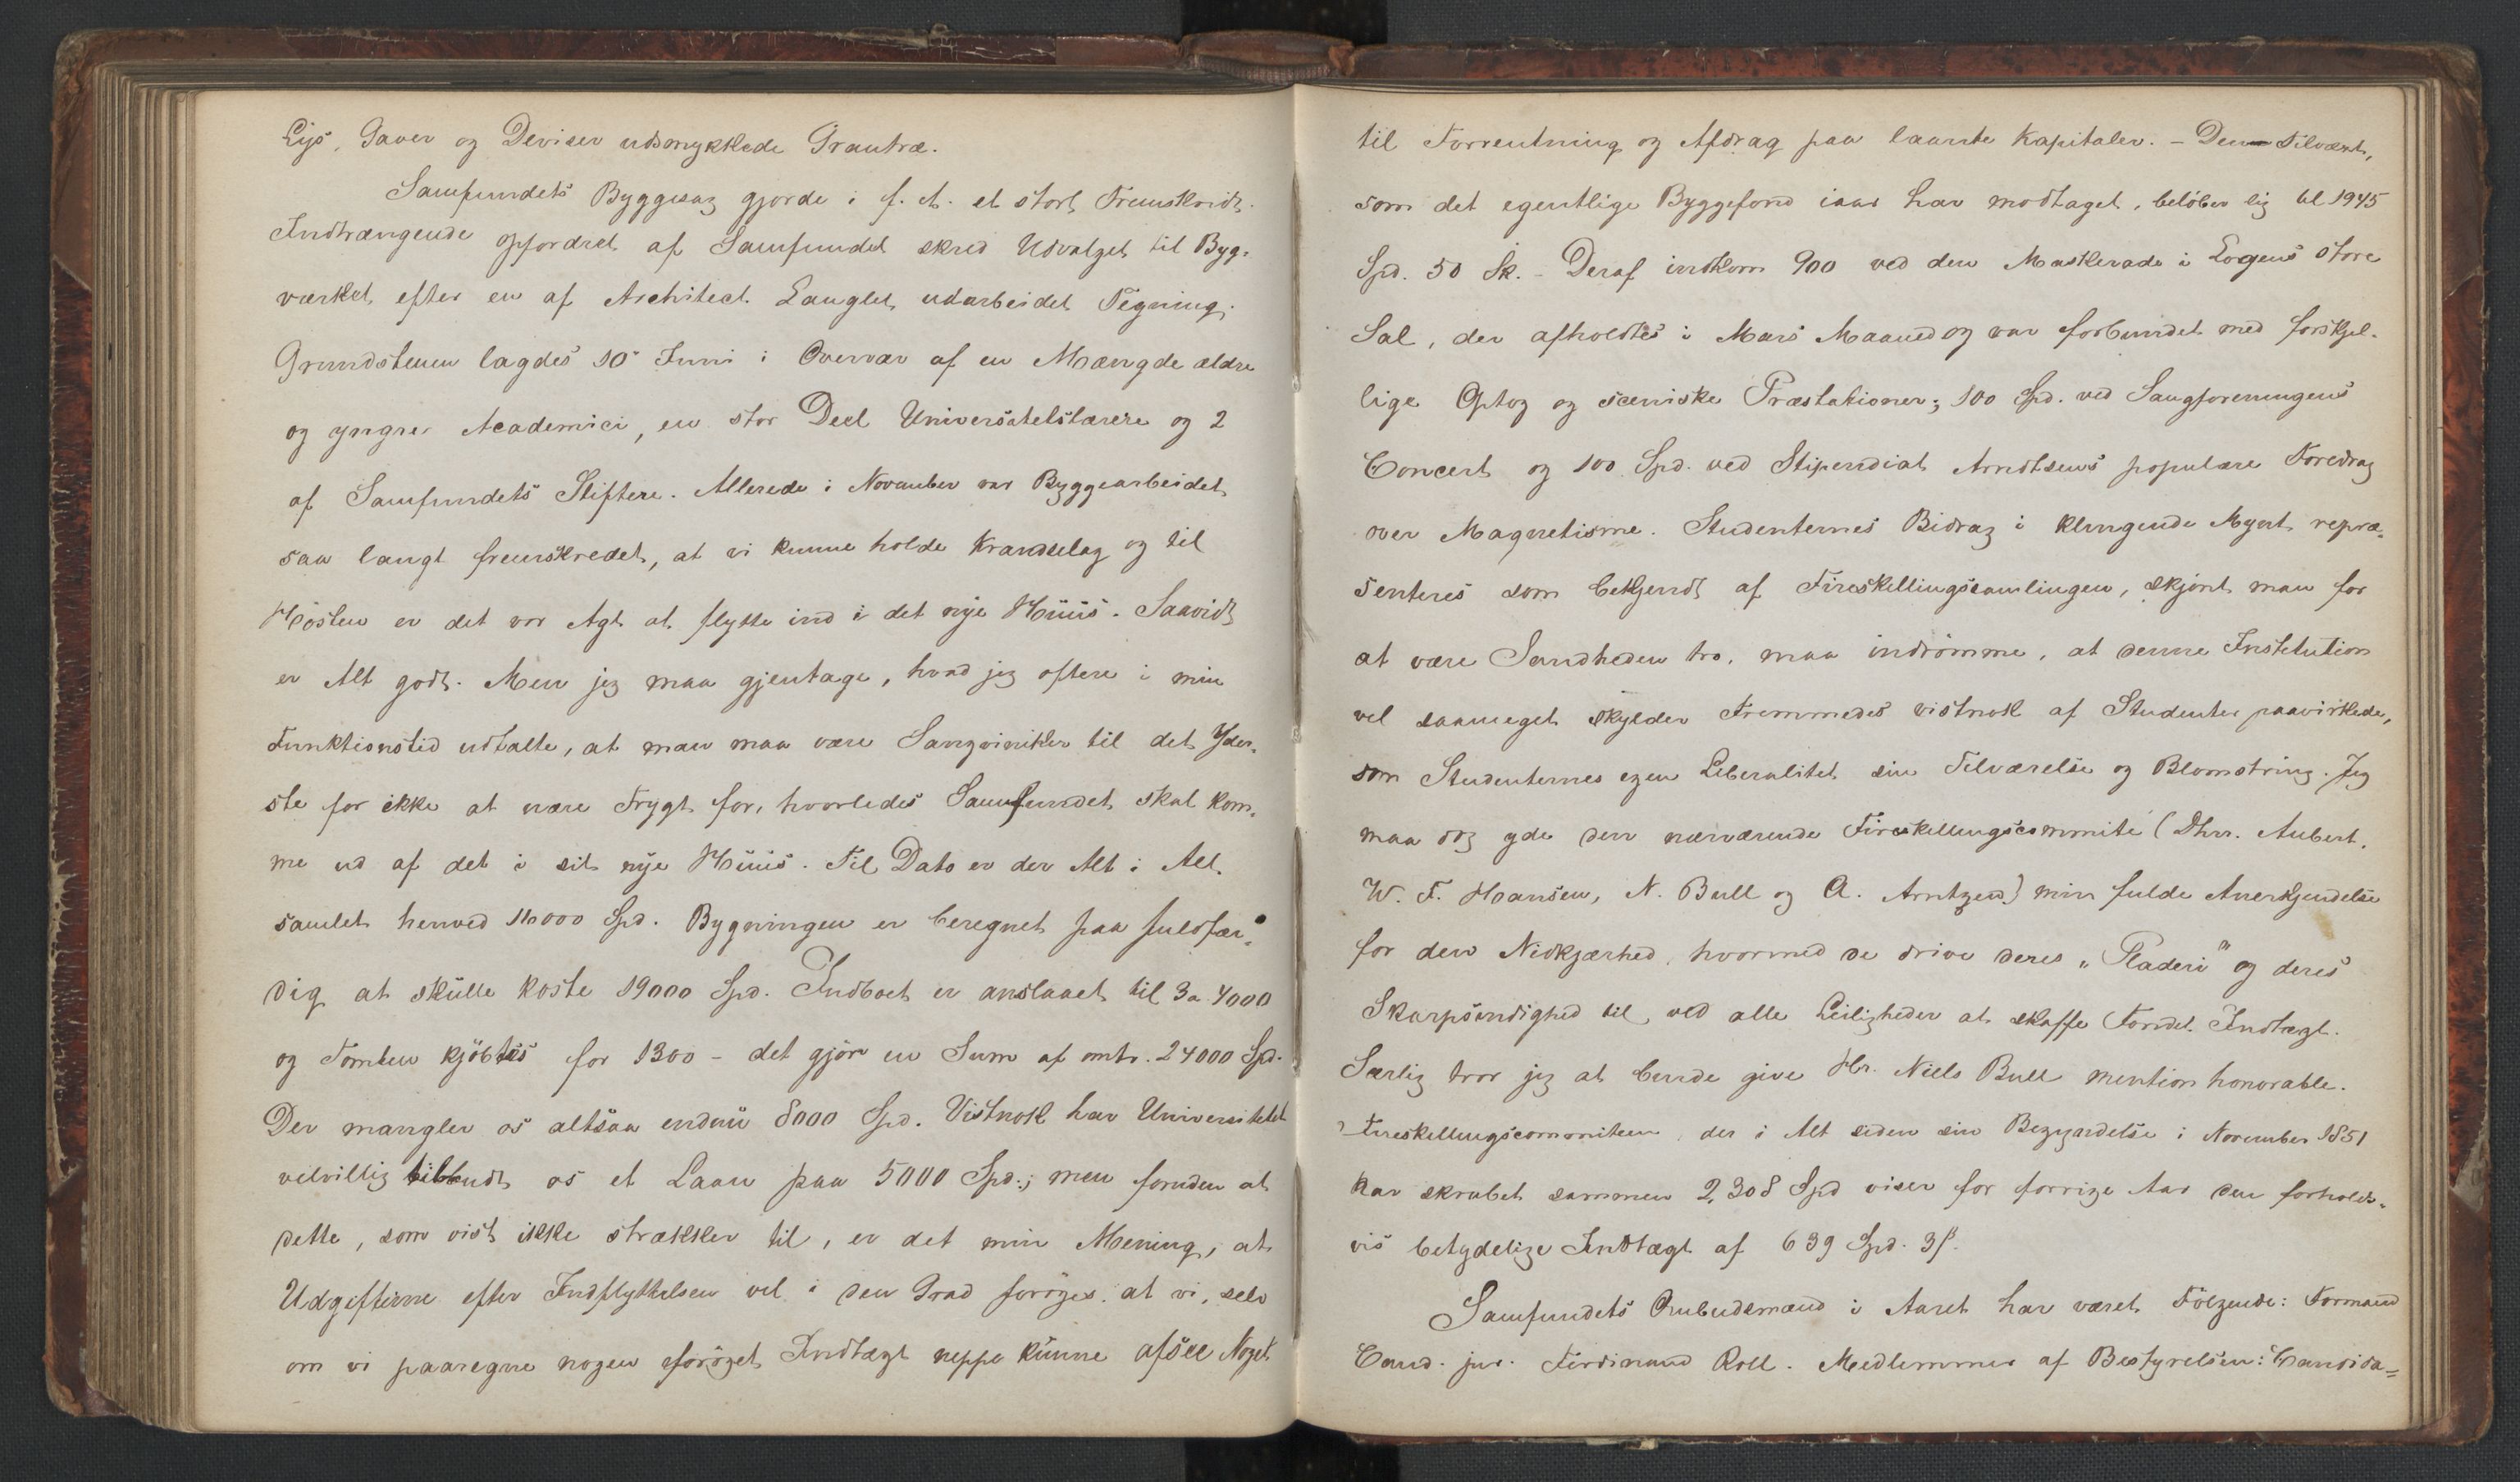 Lys, Gaver og Deviser udsmykkede Grantræ.
Samfundets Byggesag gjorde i f. A. et stort Fremskridt.
Indtrængende opfordret af Samfundet skred Udvalget til Byg-
værket efter en af Architect Langlet udarbeidet Tegning.
Grundstenen lagdes 10 Juni i Overvær af en Mængde ældre
og yngre Academici, en stor Deel Universitetslærere og 2
af Samfundets Stiftere. Allerede i November var Byggearbeidet
saa langt fremskredet, at vi kunne holde Krandselag og til
Hösten er det vor Agt at flytte ind i det nye Huus. Saavidt
er Alt godt. Men jeg maa gjentage, hvad jeg oftere i min
Funktionstid udtalte, at man maa være Sangviniker til det Yder-
ste for ikke at være Frygt for, hvorledes Samfundet skal kom-
me ud af det i sit nye Huus. Til Dato er der Alt i Alt
samlet henved 16000 Spd. Bygningen er beregnet paa fuldfær-
dig at skulle koste 19000 Spd. Indboet er anslaaet til 3 a 4000
og Tomten kjöbtes for 1300 - det gjör en Sum af omtr. 24000 Spd.
Der mangler os altsaa endnu 8000 Spd. Vistnok har Universitetet
velvillig tilbudt os et Laan paa 5000 Spd.; men foruden at
dette, som vist ikke strækker til, er det min Mening, at
Udgifterne efter Indflyttelsen vel i den Grad foröges, at vi, selv
om vi paaregne nogen foröget Indtægt neppe kunne afsee Noget
til Forrentning og Afdrag paa laante Kapitaler. - Den Tilvæxt,
som det egentlige Byggefond iaar har modtaget, belöber sig til 1945
Spd. 50 Sk. - Deraf indkom 900 ved den Maskerade i Logens store
Sal, der afholdtes i Mars Maaned og var forbundet med forskjel-
lige Optog og sceniske Præstationer; 100 Spd. ved Sangforeningens
Concert og 100 Spd. ved Stipendiat Arndtsens populære Foredrag
over Magnetisme. Studenternes Bidrag i klingende Mynt repræ-
senteres som bekjendt af Fireskillingssamlingen, skjönt man for
at være Sandheden tro, maa indrömme, at denne Institution
vel saameget skylder Fremmedes vistnok af Studenter paavirkede,
som Studenternes egen Liberalitet sin Tilværelse og Blomstring. Jeg
maa dog yde den nærværende Fireskillingscommité (Dhrr. Aubert,
W. F. Hansen, N. Bull og A. Arntzen) min fulde Anerkjendelse
for den Nidkjærhed, hvormed de drive deres "Pladeri" og deres
Skarpsindighed til, ved alle Leiligheder at skaffe Fondet Indtægt.
Særlig tror jeg at burde give Hr. Niels Bull mention honorable.
Fireskillingscommiteen, der i Alt siden sin Begyndelse i November 1851
har skrabet sammen 2,308 Spd viser for forrige Aar den forholds-
vis betydelige Indtægt af 639 Spd. 3 ß.
Samfundets Ombudsmænd i Aaret har været Fölgende: Formand
Cand. jur. Ferdinand Roll. Medlemmer af Bestyrelsen: Candida-